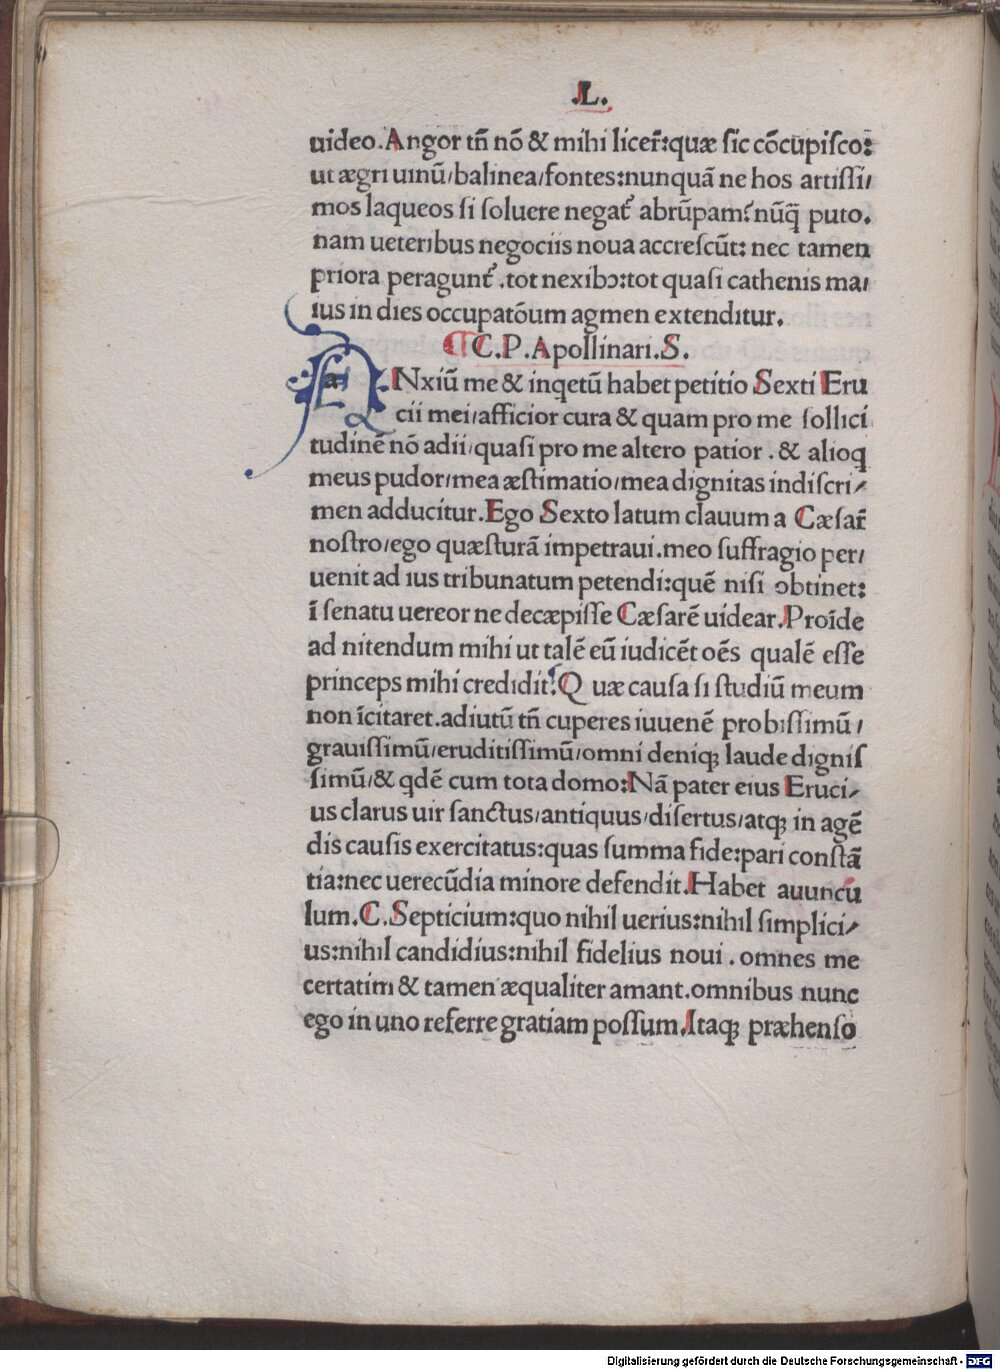 .L.
uideo.Angor tñ nõ & mihi licer̃:quæ sic cõcupisco:
ut ægri uinũ/balinea/fontes:nunquã ne hos artissi/
mos laqueos si soluere negat᷑ abrũpam?nũq̃ puto.
nam ueteribus negociis noua accrescũt: nec tamen
priora peragunt᷑.tot nexibꝰ:tot quasi cathenis ma/
ius in dies occupatõum agmen extenditur.
C.P.Apollinari.S.
a NXiũ me & inqetũ habet petitio Sexti Eru
cii mei/afficior cura & quam pro me sollici
tudinẽ nõ adii/quasi pro me altero patior . & alioq
meus pudor/mea æstimatio/mea dignitas indiscri/
men adducitur.Ego Sexto latum clauum a Cæsar̃
nostro/ego quæsturã impetraui.meo suffragio per/
uenit ad ius tribunatum petendi:quẽ nisi obtinet:
ĩ senatu uereor ne decæpisse Cæsarẽ uidear.Proĩde
ad nitendum mihi ut talẽ eũ iudicẽt oẽs qualẽ esse
princeps mihi credidit.Q uæ causa si studiũ meum
non ĩcitaret.adiutũ tñ cuperes iuuenẽ probissimũ/
grauissimũ/eruditissimũ/omni deniqꝫ laude digniss
simũ/& qdẽ cum tota domo:Nã pater eius Eruci/
us clarus uir sanctus/antiquus/disertus/atqꝫ in agẽ
dis causis exercitatus:quas summa fide:pari constã
tia:nec uerecũdia minore defendit.Habet auuncu
lum.C.Septicium:quo nihil uerius:nihil simplici/
us:nihil candidius:nihil fidelius noui . omnes me
certatim & tamen æqualiter amant.omnibus nunc
ego in uno referre gratiam possum.Itaqꝫ præhenso
Digitalisierung gefördert durch die Deutsche Forschungsgemeinschaft - DFG